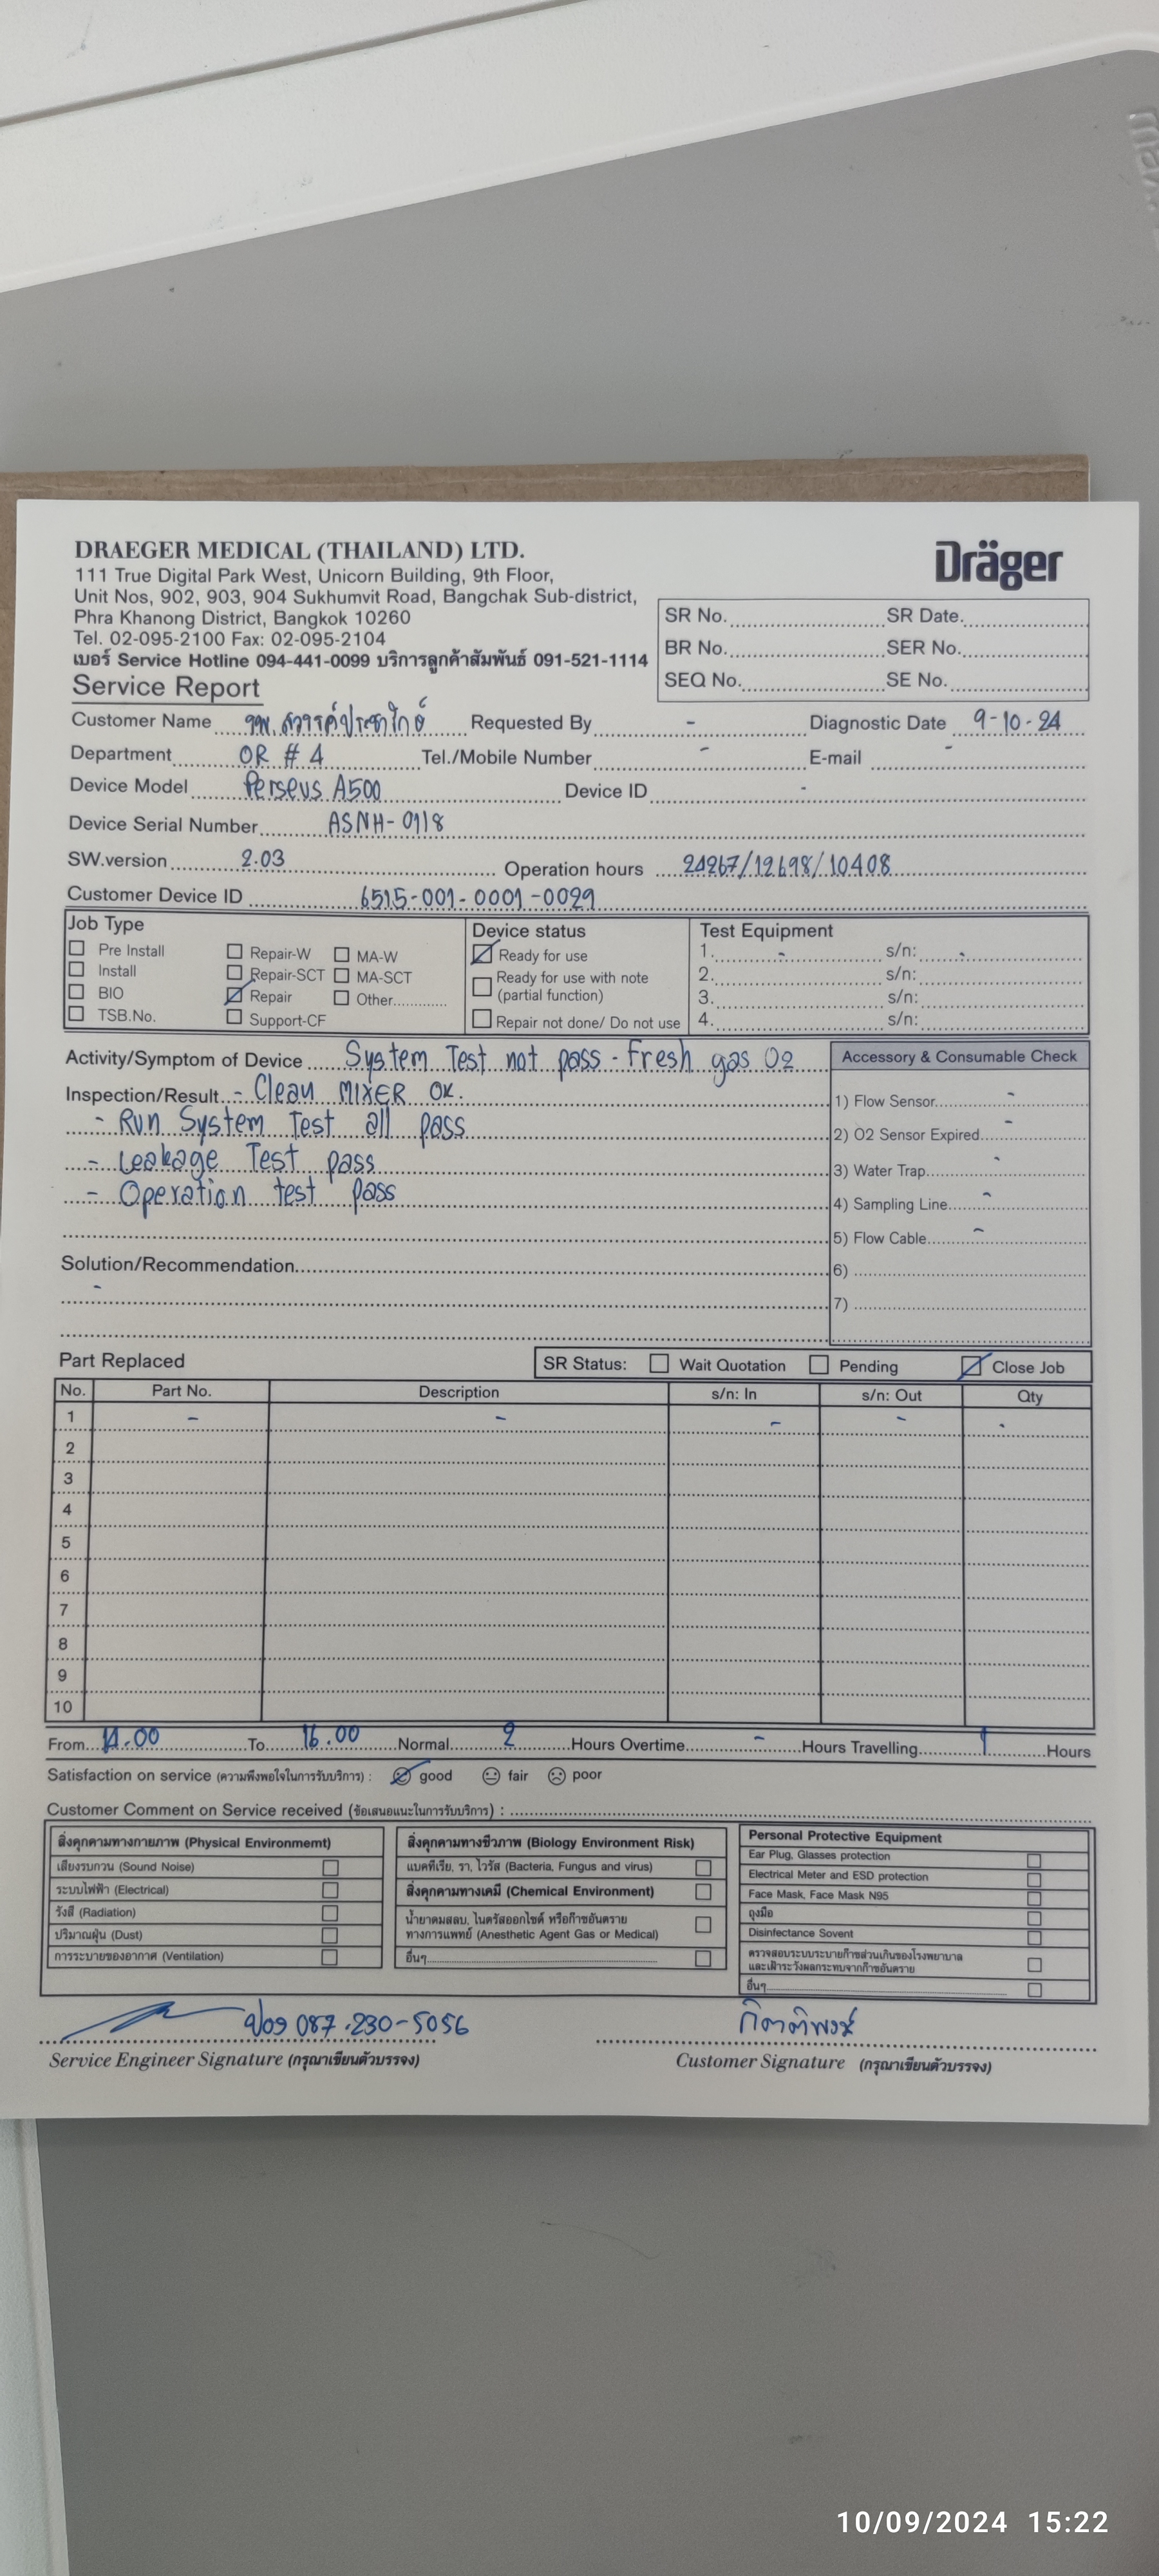 DRAEGER MEDICAL (THAILAND) LTD.
Dräger
111 True Digital Park West, Unicorn Building, 9th Floor,
Unit Nos, 902, 903, 904 Sukhumvit Road, Bangchak Sub-district,
Phra Khanong District, Bangkok 10260
Tel. 02-095-2100 Fax: 02-095-2104
เบอร์ Service Hotline 094-441-0099 บริการลูกค้าสัมพันธ์ 091-521-1114
SR No. SR Date.
BR No. SER No.
SEQ No. SE No.
Service Report
Customer Name รพ.สวรรค์ประชารักษ์ Requested By - Diagnostic Date 9-10-24
Department OR # 4 Tel./Mobile Number - E-mail -
Device Model Perseus A500 Device ID -
Device Serial Number ASNH-0118
SW.version 2.03 Operation hours 24267/12698/10408
Customer Device ID 6515-001-0001-0029
Job Type Device status Test Equipment
Pre Install Repair-W MA-W Ready for use 1. - s/n: -
Install Repair-SCT MA-SCT Ready for use with note 2. s/n:
BIO Repair Other (partial function) 3. s/n:
TSB.No. Support-CF Repair not done/ Do not use 4. s/n:
Activity/Symptom of Device System Test not pass - Fresh gas O2
Inspection/Result - Clean MIXER OK.
- Run System Test all pass
- Leakage Test pass
- Operation test pass
Accessory & Consumable Check
1) Flow Sensor -
2) O2 Sensor Expired -
3) Water Trap -
4) Sampling Line -
5) Flow Cable -
6)
7)
Solution/Recommendation
-
Part Replaced SR Status: Wait Quotation Pending Close Job
No. Part No. Description s/n: In s/n: Out Qty
1 - - - - -
2
3
4
5
6
7
8
9
10
From 14.00 To 16.00 Normal 2 Hours Overtime - Hours Travelling 1 Hours
Satisfaction on service (ความพึงพอใจในการรับบริการ) : good fair poor
Customer Comment on Service received (ข้อเสนอแนะในการรับบริการ) :
สิ่งคุกคามทางกายภาพ (Physical Environmemt)
เสียงรบกวน (Sound Noise)
ระบบไฟฟ้า (Electrical)
รังสี (Radiation)
ปริมาณฝุ่น (Dust)
การระบายของอากาศ (Ventilation)
สิ่งคุกคามทางชีวภาพ (Biology Environment Risk)
แบคทีเรีย, รา, ไวรัส (Bacteria, Fungus and virus)
สิ่งคุกคามทางเคมี (Chemical Environment)
น้ำยาดมสลบ, ไนตรัสออกไซด์ หรือก๊าซอันตราย
ทางการแพทย์ (Anesthetic Agent Gas or Medical)
อื่นๆ
Personal Protective Equipment
Ear Plug, Glasses protection
Electrical Meter and ESD protection
Face Mask, Face Mask N95
ถุงมือ
Disinfectance Sovent
ตรวจสอบระบบระบายก๊าซส่วนเกินของโรงพยาบาล
และเฝ้าระวังผลกระทบจากก๊าซอันตราย
อื่นๆ
087-230-5056
Service Engineer Signature (กรุณาเขียนตัวบรรจง)
Customer Signature (กรุณาเขียนตัวบรรจง)
10/09/2024 15:22